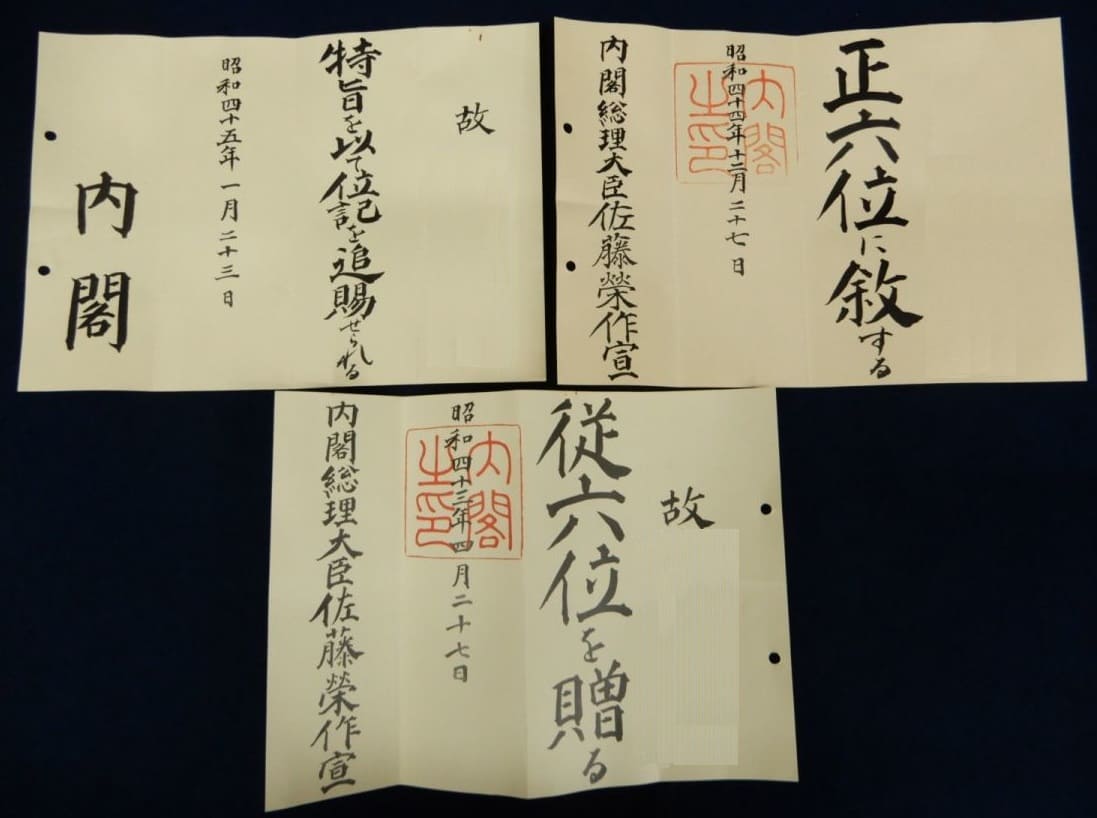 故
特旨を以て位記を追賜せられる
昭和四十五年一月二十三日
内閣
正六位に敘する
昭和四十四年十二月二十七日
内閣之印
内閣総理大臣佐藤榮作宣
故
従六位を贈る
昭和四十三年四月二十七日
内閣之印
内閣総理大臣佐藤榮作宣